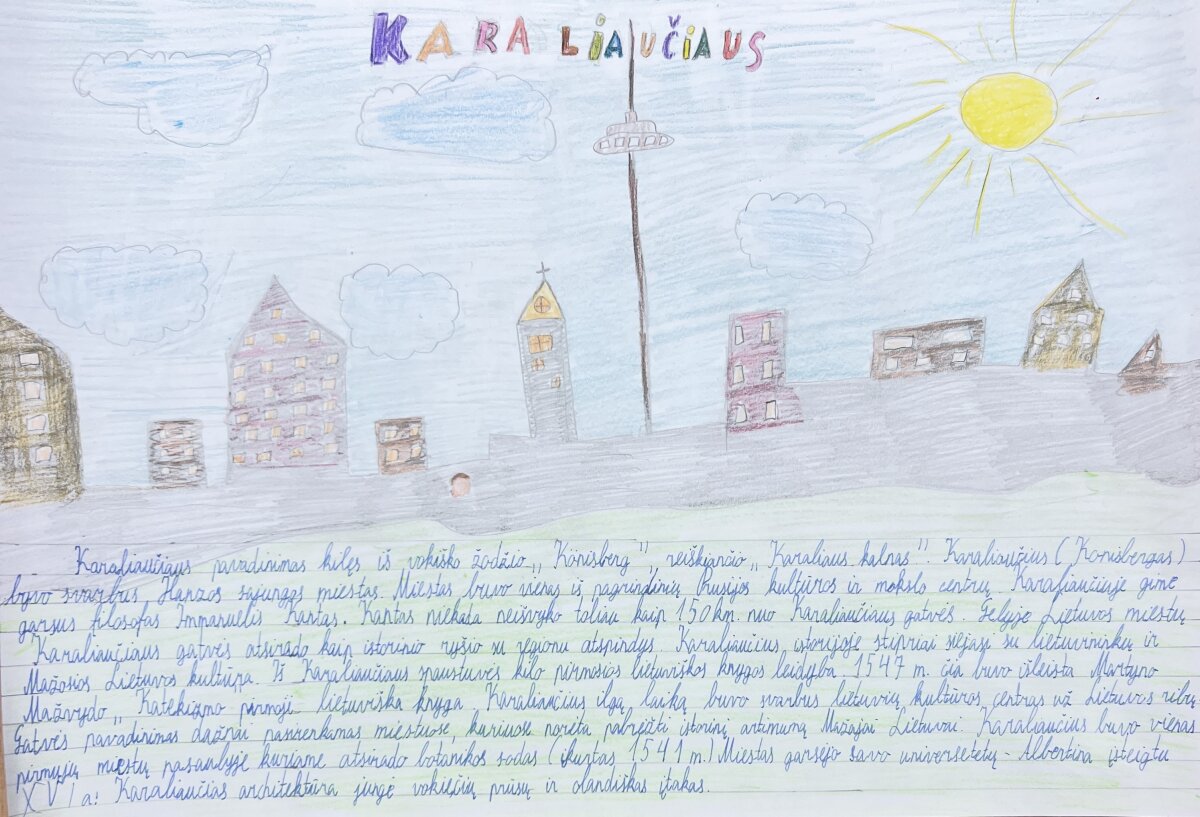 KARALIAUČIAUS
Karaliaučiaus pavadinimas kilęs iš vokiško žodžio „Könisberg", reiškiančio „Karaliaus kalnas". Karaliaučius (Kionisbergas)
buvo svarbus Hanzos sąjungos miestas. Miestas buvo vienas iš pagrindinių Rusijos kultūros ir mokslo centrų. Karaliaučiuje gimė
garsus filosofas Immanuelis Kantas. Kantas niekata neišvyko toliau kaip 150 km. nuo Karaliaučiaus gatvės. Gelyje Lietuvos miestų
Karaliaučiaus gatvės atsirado kaip istorinio ryšio su regionu atspindys. Karaliaučius istorijoje stipriai siejasi su lietuvninkų ir
Mažosios Lietuvos kultūra. Iš Karaliaučiaus spaustuvės kilo pirmosios lietuviškos knygos leidyba 1547 m. čia buvo išleista Martyno
Mažvydo „Katekizmo pirmoji lietuviška knyga. Karaliaučius ilgą laiką buvo svarbus lietuvių kultūros centras už Lietuvos ribų
Gatvės pavadinimas dažnai pasirenkamas miestuose, kuriuose norėta pabrėžti istorinį artimumą Mažajai Lietuvai. Karaliaučius buvo vienas
pirmųjų miestų pasaulyje kuriame atsirado botanikos sodas (įkurtas 1541 m.) Miestas garsėjo savo universetetų - Albertina įsteigtu
XVI a. Karaliaučias architektūra jungė vokiečių prūsų ir olandiškas įtakas.